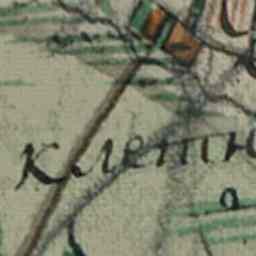 клетн